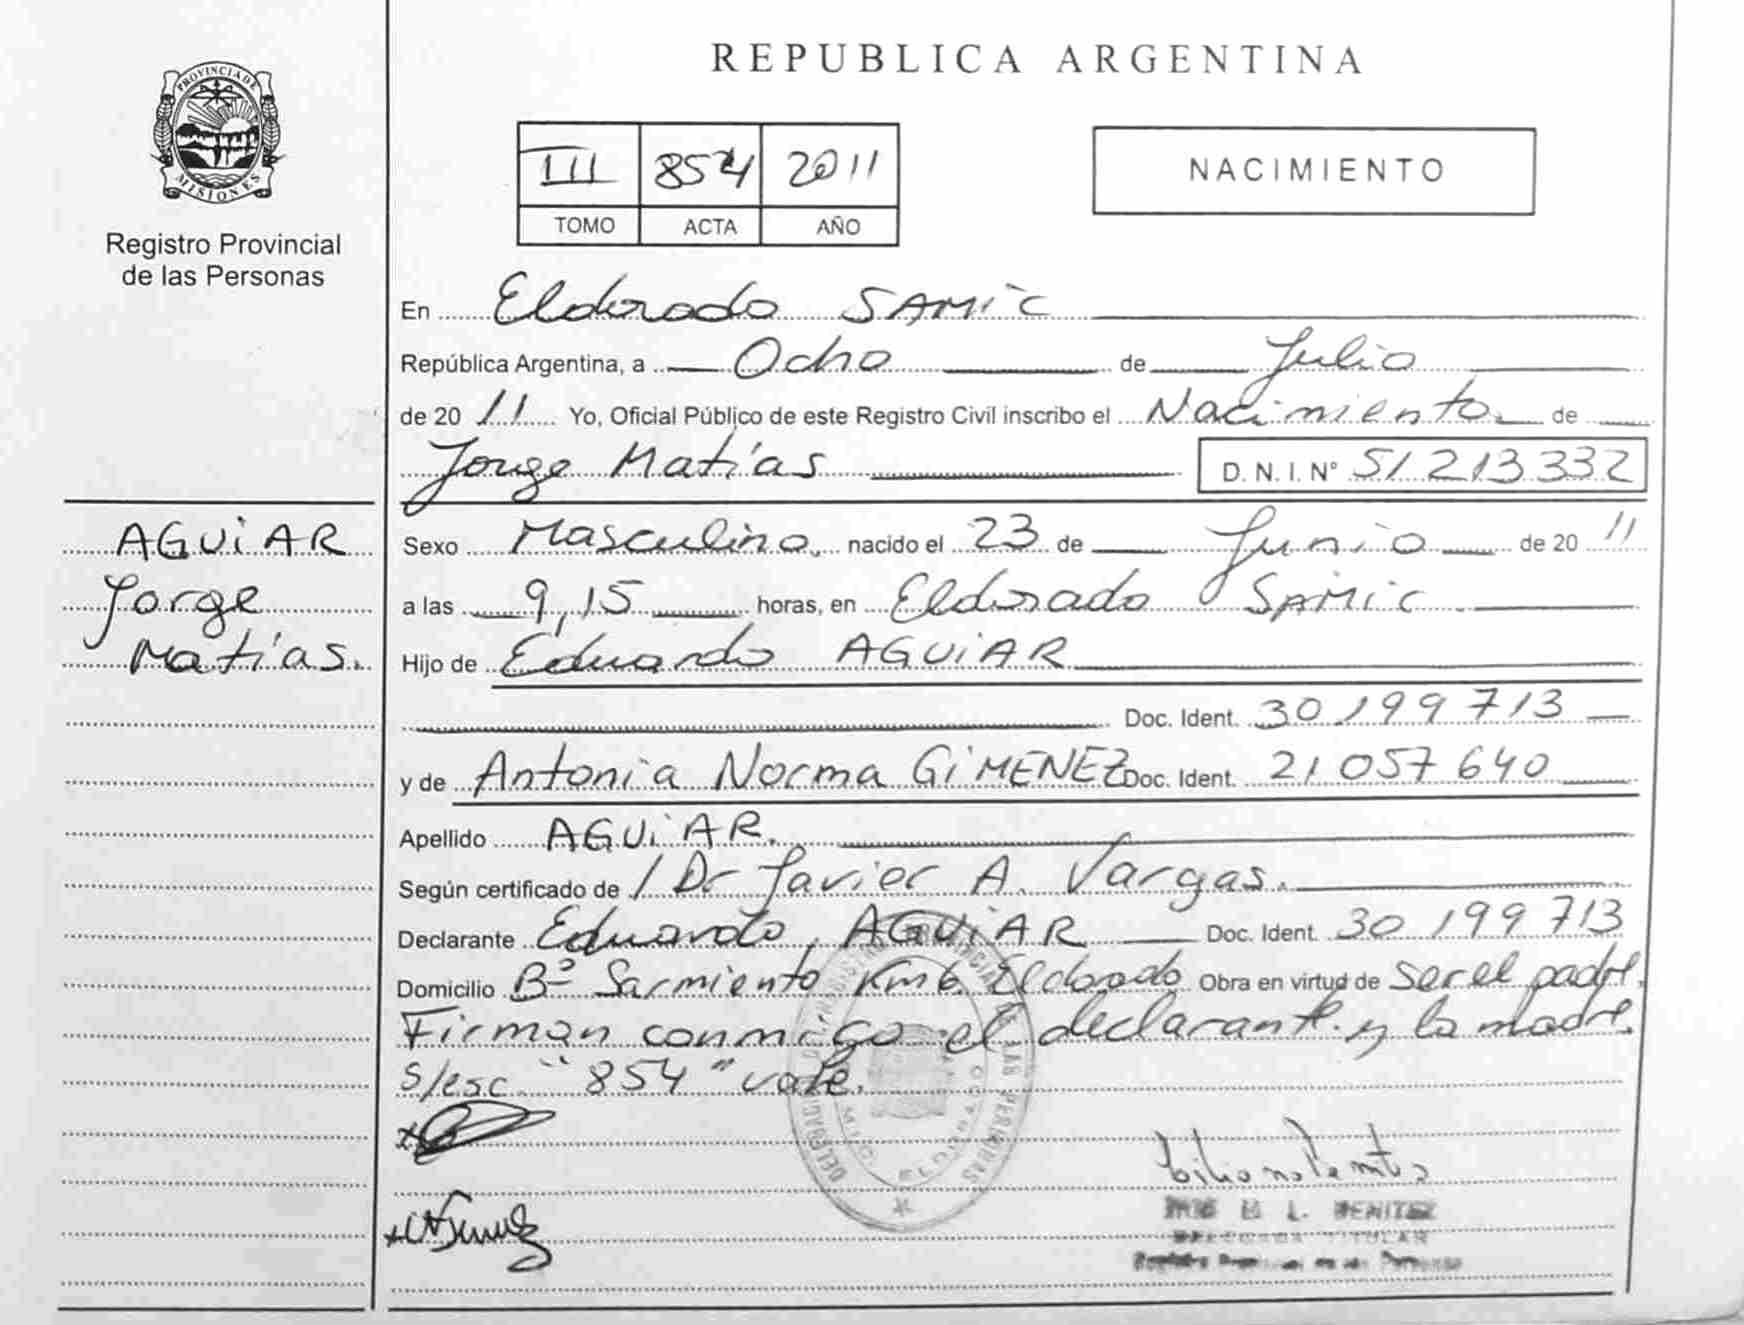 REPUBLICA ARGENTINA
PROVINCIA DE
MISIONES
Registro Provincial
de las Personas
III 854 2011
TOMO ACTA AÑO
NACIMIENTO
En Eldorado SAMIC
República Argentina, a Ocho de Julio
de 2011 Yo, Oficial Público de este Registro Civil inscribo el Nacimiento de
Jorge Matías D. N. I. N° 51.213.332
AGUIAR
Jorge
Matías.
Sexo Masculino, nacido el 23 de Junio de 2011
a las 9,15 horas, en Eldorado SAMIC
Hijo de Eduardo AGUIAR
Doc. Ident. 30 199 713
y de Antonia Norma GIMENEZ Doc. Ident. 21 057 640
Apellido AGUIAR.
Según certificado de / Dr Javier A. Vargas.
Declarante Eduardo AGUIAR Doc. Ident. 30 199 713
Domicilio Bº Sarmiento Km 6 Eldorado Obra en virtud de ser el padre.
Firman conmigo el declarante y la madre
s/esc "854" vale.
L. BENITEZ
TITULAR